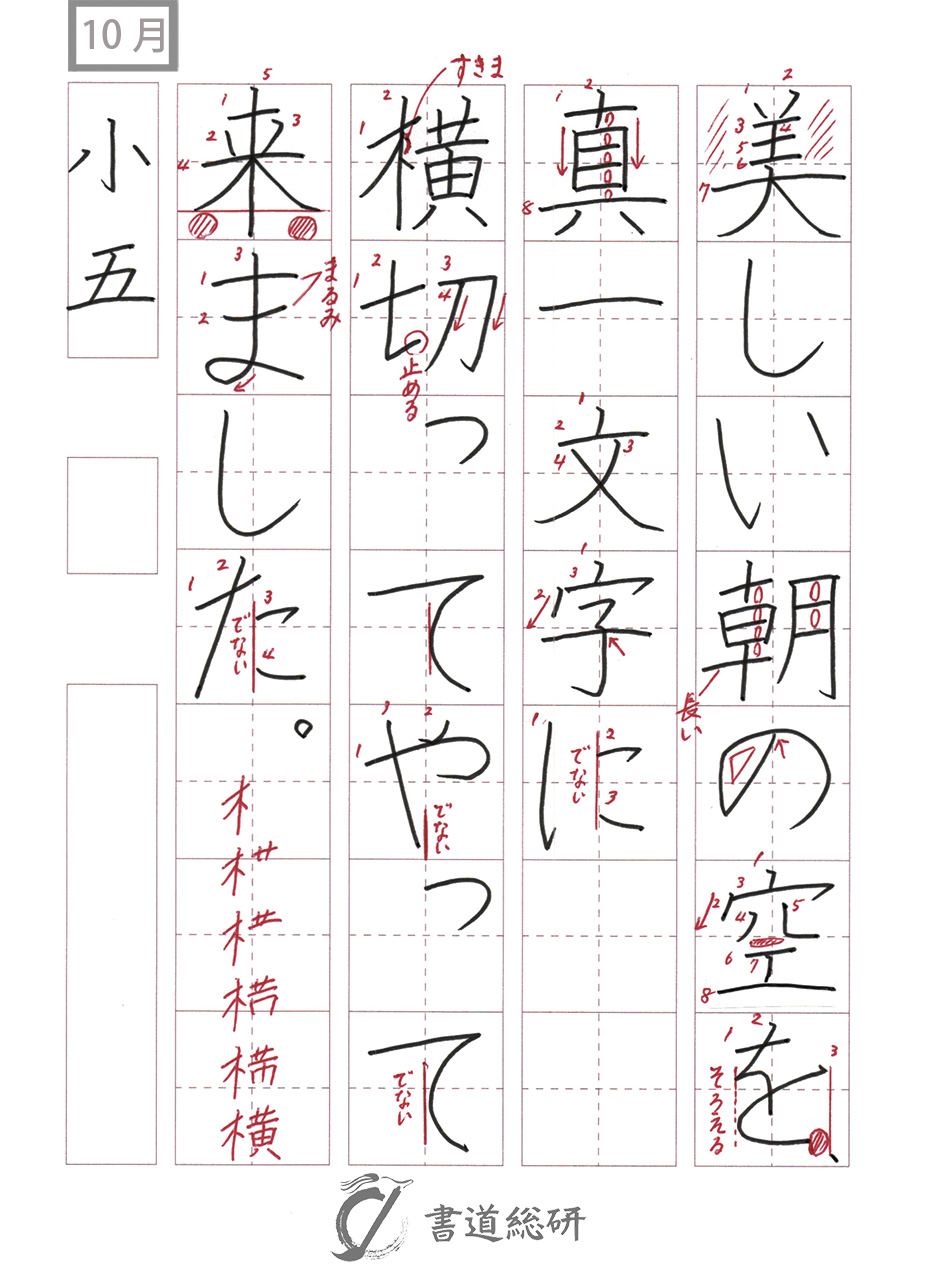 10月
美しい朝の空を、
真一文字に
横切ってやって
来ました。
小五
すきま
まるみ
止める
長い
でない
でない
でない
でない
でない
そろえる
木
横
書道総研